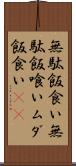 無駄飯食い無
駄飯喰いムダ
飯食い